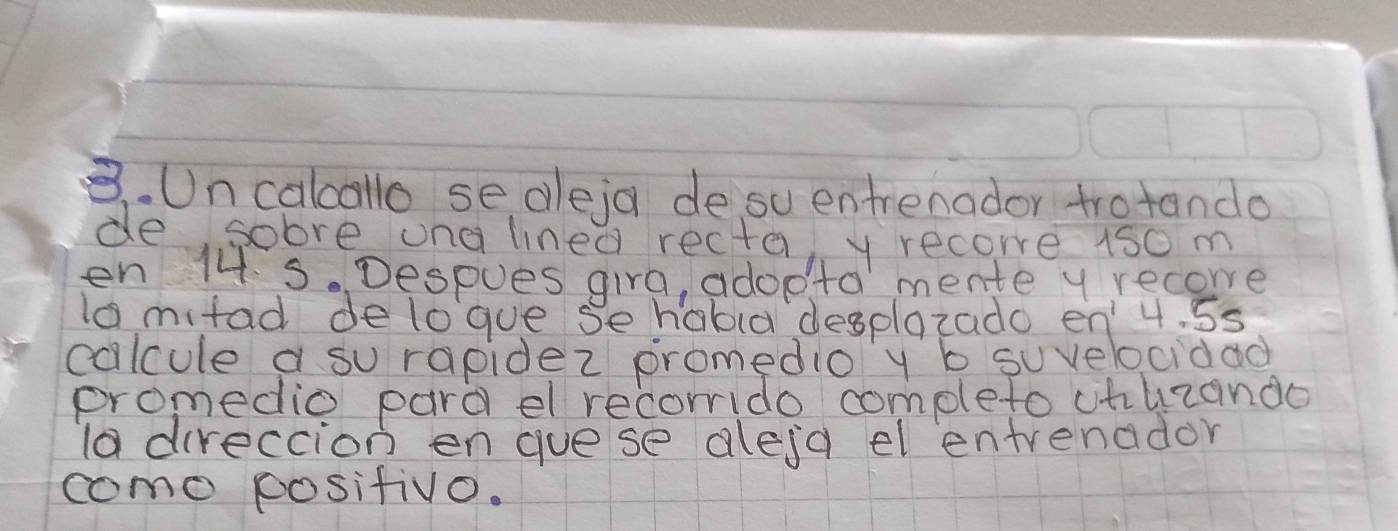 3. Un caballo se aleja de su entrenador trotando
de sobre una linea recta, y recorre 150 m
en 14. s. Despues gira, adopta mente y recorre
la mitad de lo que se habia desplazado en 4.5s
calcule a su rapidez promedio y b su velocidad
promedio para el recorrido completo utilizando
la direccion en que se aleja el entrenador
como positivo.